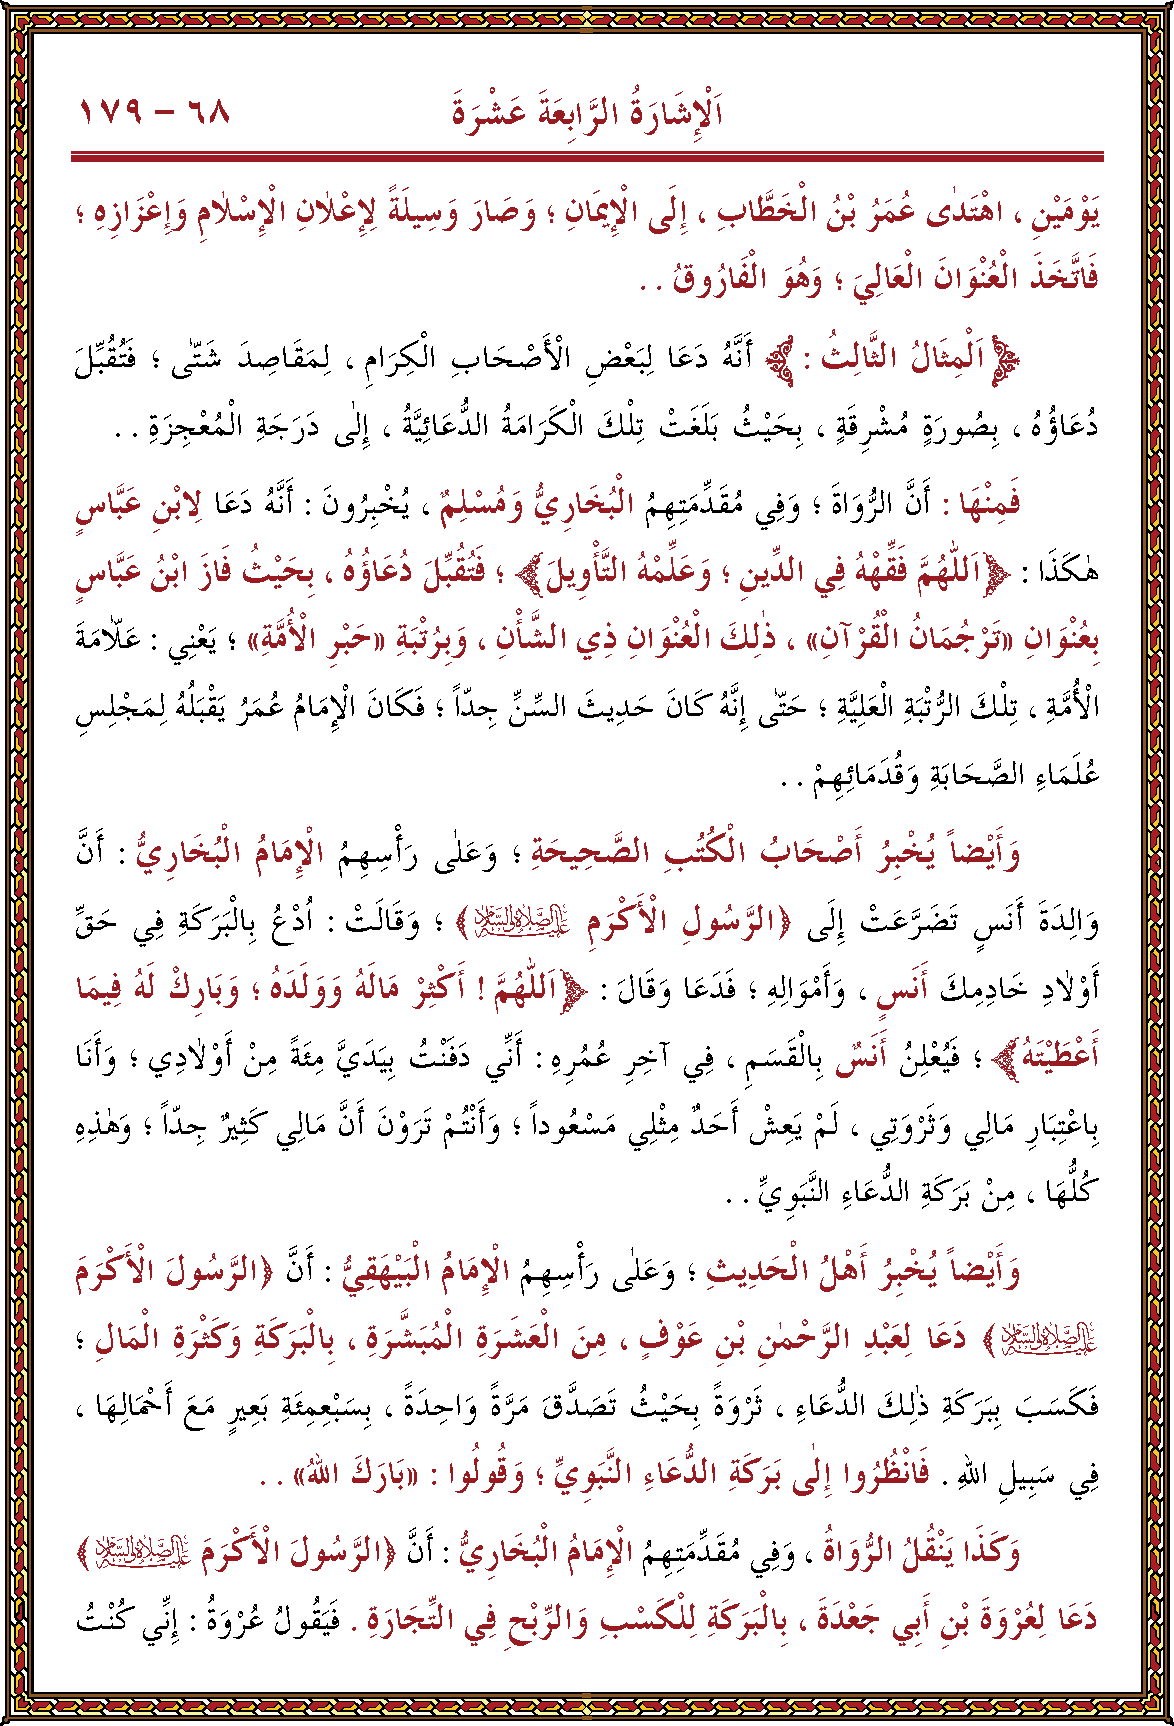 اَلْإِشَارَةُ الرَّابِعَةَ عَشْرَةَ ٦٨ – ١٧٩
يَوْمَيْنِ ، اهْتَدٰى عُمَرُ بْنُ الْخَطَّابِ ، إِلَى الْإِيمَانِ ؛ وَصَارَ وَسِيلَةً لِإِعْلَانِ الْإِسْلَامِ وَإِعْزَازِهِ ؛
فَاتَّخَذَ الْعُنْوَانَ الْعَالِيَ ؛ وَهُوَ الْفَارُوقُ . .
﴿اَلْمِثَالُ الثَّالِثُ : ﴾ أَنَّهُ دَعَا لِبَعْضِ الْأَصْحَابِ الْكِرَامِ ، لِمَقَاصِدَ شَتّٰى ؛ فَتُقُبِّلَ
دُعَاؤُهُ ، بِصُورَةٍ مُشْرِقَةٍ ، بِحَيْثُ بَلَغَتْ تِلْكَ الْكَرَامَةُ الدُّعَائِيَّةُ ، إِلٰى دَرَجَةِ الْمُعْجِزَةِ . .
فَمِنْهَا : أَنَّ الرُّوَاةَ ؛ وَفِي مُقَدِّمَتِهِمُ الْبُخَارِيُّ وَمُسْلِمٌ ، يُخْبِرُونَ : أَنَّهُ دَعَا لِابْنِ عَبَّاسٍ
هٰكَذَا : ﴿اَللّٰهُمَّ فَقِّهْهُ فِي الدِّينِ ؛ وَعَلِّمْهُ التَّأْوِيلَ﴾ ؛ فَتُقُبِّلَ دُعَاؤُهُ ، بِحَيْثُ فَازَ ابْنُ عَبَّاسٍ
بِعُنْوَانِ «تَرْجُمَانُ الْقُرْآنِ» ، ذٰلِكَ الْعُنْوَانِ ذِي الشَّأْنِ ، وَبِرُتْبَةِ «حَبْرِ الْأُمَّةِ» ؛ يَعْنِي : عَلّٰامَةَ
الْأُمَّةِ ، تِلْكَ الرُّتْبَةِ الْعَلِيَّةِ ؛ حَتّٰى إِنَّهُ كَانَ حَدِيثَ السِّنِّ جِدّاً ؛ فَكَانَ الْإِمَامُ عُمَرُ يَقْبَلُهُ لِمَجْلِسِ
عُلَمَاءِ الصَّحَابَةِ وَقُدَمَائِهِمْ . .
وَأَيْضاً يُخْبِرُ أَصْحَابُ الْكُتُبِ الصَّحِيحَةِ ؛ وَعَلٰى رَأْسِهِمُ الْإِمَامُ الْبُخَارِيُّ : أَنَّ
وَالِدَةَ أَنَسٍ تَضَرَّعَتْ إِلَى ﴿الرَّسُولِ الْأَكْرَمِ عليه الصلاة والسلام﴾ ؛ وَقَالَتْ : اُدْعُ بِالْبَرَكَةِ فِي حَقِّ
أَوْلَادِ خَادِمِكَ أَنَسٍ ، وَأَمْوَالِهِ ؛ فَدَعَا وَقَالَ : ﴿اَللّٰهُمَّ ! أَكْثِرْ مَالَهُ وَوَلَدَهُ ؛ وَبَارِكْ لَهُ فِيمَا
أَعْطَيْتَهُ﴾ ؛ فَيُعْلِنُ أَنَسٌ بِالْقَسَمِ ، فِي آخِرِ عُمُرِهِ : أَنِّي دَفَنْتُ بِيَدَيَّ مِئَةً مِنْ أَوْلَادِي ؛ وَأَنَا
بِاعْتِبَارِ مَالِي وَثَرْوَتِي ، لَمْ يَعِشْ أَحَدٌ مِثْلِي مَسْعُوداً ؛ وَأَنْتُمْ تَرَوْنَ أَنَّ مَالِي كَثِيرٌ جِدّاً ؛ وَهٰذِهِ
كُلُّهَا ، مِنْ بَرَكَةِ الدُّعَاءِ النَّبَوِيِّ . .
وَأَيْضاً يُخْبِرُ أَهْلُ الْحَدِيثِ ؛ وَعَلٰى رَأْسِهِمُ الْإِمَامُ الْبَيْهَقِيُّ : أَنَّ ﴿الرَّسُولَ الْأَكْرَمَ
عليه الصلاة والسلام﴾ دَعَا لِعَبْدِ الرَّحْمٰنِ بْنِ عَوْفٍ ، مِنَ الْعَشَرَةِ الْمُبَشَّرَةِ ، بِالْبَرَكَةِ وَكَثْرَةِ الْمَالِ ؛
فَكَسَبَ بِبَرَكَةِ ذٰلِكَ الدُّعَاءِ ، ثَرْوَةً بِحَيْثُ تَصَدَّقَ مَرَّةً وَاحِدَةً ، بِسَبْعِمِئَةِ بَعِيرٍ مَعَ أَحْمَالِهَا ،
فِي سَبِيلِ اللهِ . فَانْظُرُوا إِلٰى بَرَكَةِ الدُّعَاءِ النَّبَوِيِّ ؛ وَقُولُوا : «بَارَكَ اللهُ» . .
وَكَذَا يَنْقُلُ الرُّوَاةُ ، وَفِي مُقَدِّمَتِهِمُ الْإِمَامُ الْبُخَارِيُّ : أَنَّ ﴿الرَّسُولَ الْأَكْرَمَ عليه الصلاة والسلام﴾
دَعَا لِعُرْوَةَ بْنِ أَبِي جَعْدَةَ ، بِالْبَرَكَةِ لِلْكَسْبِ وَالرِّبْحِ فِي التِّجَارَةِ . فَيَقُولُ عُرْوَةُ : إِنِّي كُنْتُ